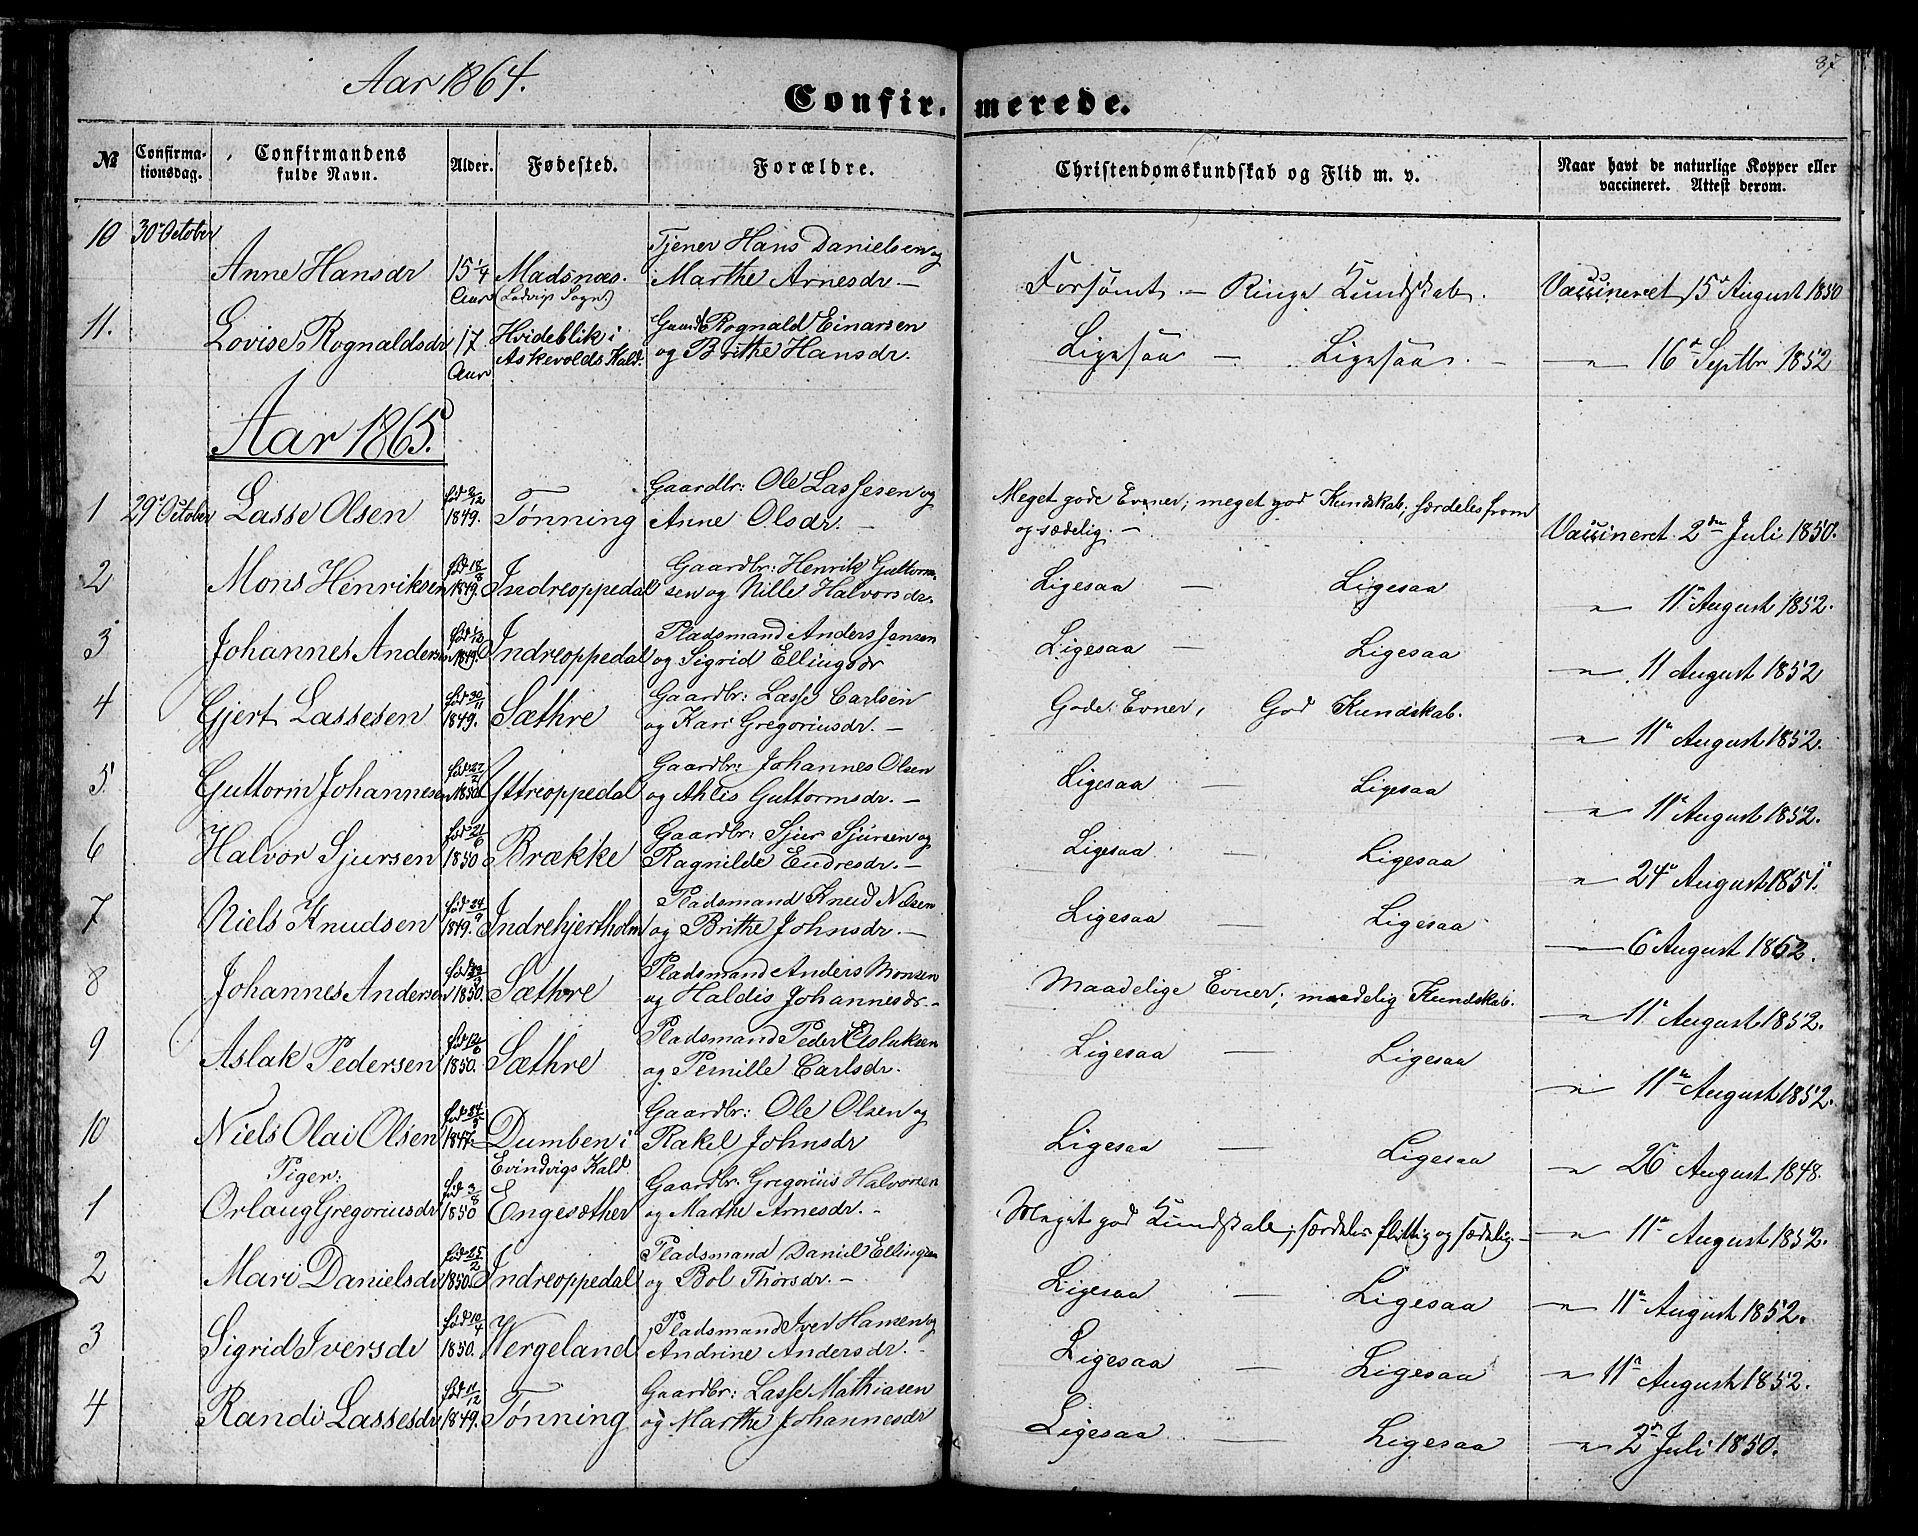 Aar 1864.
87
Confir. merede.
№ Confirma-tionsdag. Confirmandens fulde Navn. Alder. Fødested. Forældre. Christendomskundskab og Flid m. v. Naar havt de naturlige Kopper eller vaccineret. Attest derom.
10 30 October Tjener Hans Danielsen og
Anne Hansdr 15 1/4 Aar Madsnæs. (Ladvigs Sogn) Marthe Arnesdr — Forsømt. — Ringe Kundskab. Vaccineret 15 August 1850
11. Lovise Rognaldsdr 17 Aar Hvideblik i Gaardbr Rognald Einarsen
Askevolds Kald. og Brithe Hansdr. Ligesaa — Ligesaa. — " — 16 Septbr 1852
Aar 1865.
1 29 October Lasse Olsen fød 2/12 1849. Tønning Gaardbr: Ole Lassesen og Anne Olsdr. — Meget gode Evner; meget god Kundskab; særdeles from og sædelig. — Vaccineret 2den Juli 1850.
2 Mons Henriksen fød 18/8 1849 Indreoppedal Gaardbr: Henrik Guttorm-sen og Nille Halvorsdr. Ligesaa — Ligesaa — " — 11 August 1852.
3 Johannes Andersen 1849. Indreoppedal Pladsmand Anders Jensen og Sigrid Ellingsdr Ligesaa — Ligesaa — " — 11 August 1852
4 Gjert Lassesen fød 30/11 1849. Sæthre Gaardbr: Lasse Carlsen og Kari Gregoriusdr. — Gode Evner, God Kundskab. — " — 11 August 1852.
5 Guttorm Johannesen fød 27/2 1850 Yttreoppedal Gaardbr: Johannes Olsen og Ahlis Guttormsdr. — Ligesaa — Ligesaa — " — 11 August 1852.
6 Halvor Sjursen fød 21/6 1850 Brække Gaardbr: Sjur Sjursen og Ragnilde Endresdr. — Ligesaa — Ligesaa " — 24 August 1851.
7 Niels Knudsen fød 24/9 1849. Indrehjertholm Pladsmand Knud Nilsen og Brithe Johnsdr. — Ligesaa — Ligesaa — " — 6 August 1852.
8 Johannes Andersen 1850. Sæthre Pladsmand Anders Monsen og Haldis Johannesdr. — Maadelige Evner; maadelig Kundskab. — " — 11 August 1852.
9 Aslak Pedersen fød 12/6 1850. Sæthre Pladsmand Peder Aslaksen og Pernille Carlsdr. Ligesaa — Ligesaa — " — 11 August 1852.
10 Niels Olai Olsen 1847. Dumben i Evindvigs Kald. Gaardbr: Ole Olsen og Rakel Johnsdr Ligesaa — Ligesaa — " — 26 August 1848.
Piger:
1 Orlaug Gregoriusdr fød 3/8 1850 Engesæther Gaardbr: Gregorius Halvorsen og Marthe Arnesdr. — Meget god Kundskab; særdeles flittig og sædelig — — " — 11 August 1852.
2 Mari Danielsdr fød 25/2 1850. Indreoppedal Pladsmand Daniel Ellingsen og Bol Thorsdr. — Ligesaa — Ligesaa — " — 11 August 1852.
3 Sigrid Iversdr fød 10/4 1850. Wergeland Pladsmand Iver Hansen og Andrine Andersdr. — Ligesaa — Ligesaa — " — 11 August 1852.
4 Randi Lassesdr fød 11/12 1849. Tønning Gaardbr: Lasse Mathiasen og Marthe Johannesdr Ligesaa — Ligesaa — " — 2 Juli 1850.